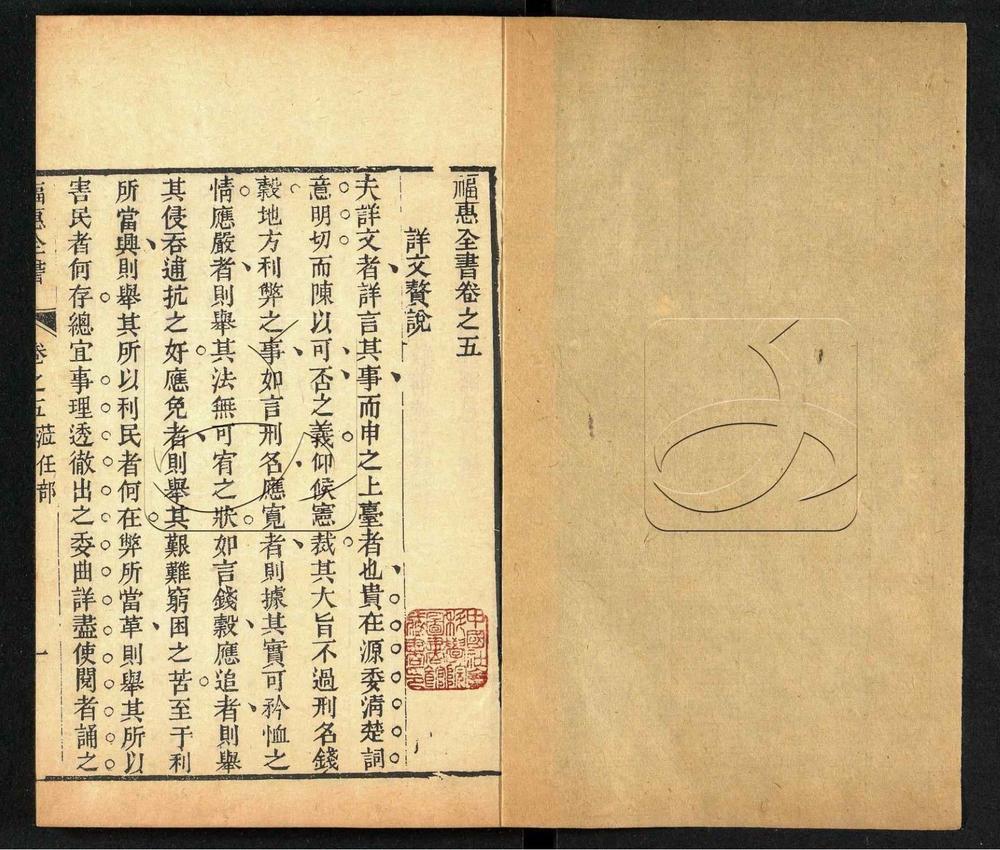 福惠全書卷之五
詳文贅說
夫詳文者詳言其事而申之上臺者也貴在源委清楚詞
意明切而陳以可否之義仰候憲裁其大旨不過刑名錢
穀地方利弊之事如言刑名應寬者則據其實可矜恤之
情應嚴者則舉其法無可宥之狀如言錢穀應追者則舉
其侵吞逋抗之奸應免者則舉其艱難窮困之苦至于利
所當興則舉其所以利民者何在弊所當革則舉其所以
害民者何存總宜事理透徹出之委曲詳盡使閱者誦之
福惠全書 卷之五 蒞任部 一